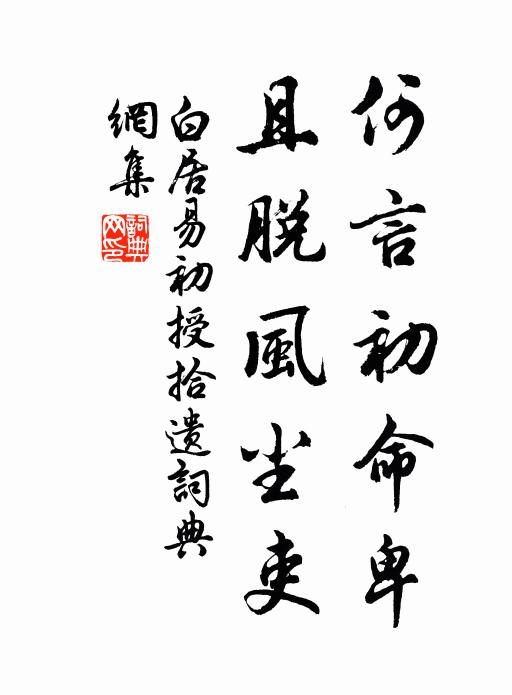 何言初命卑
且脫風尘吏
白居易初授拾遗詞典
網集
詞典
网印